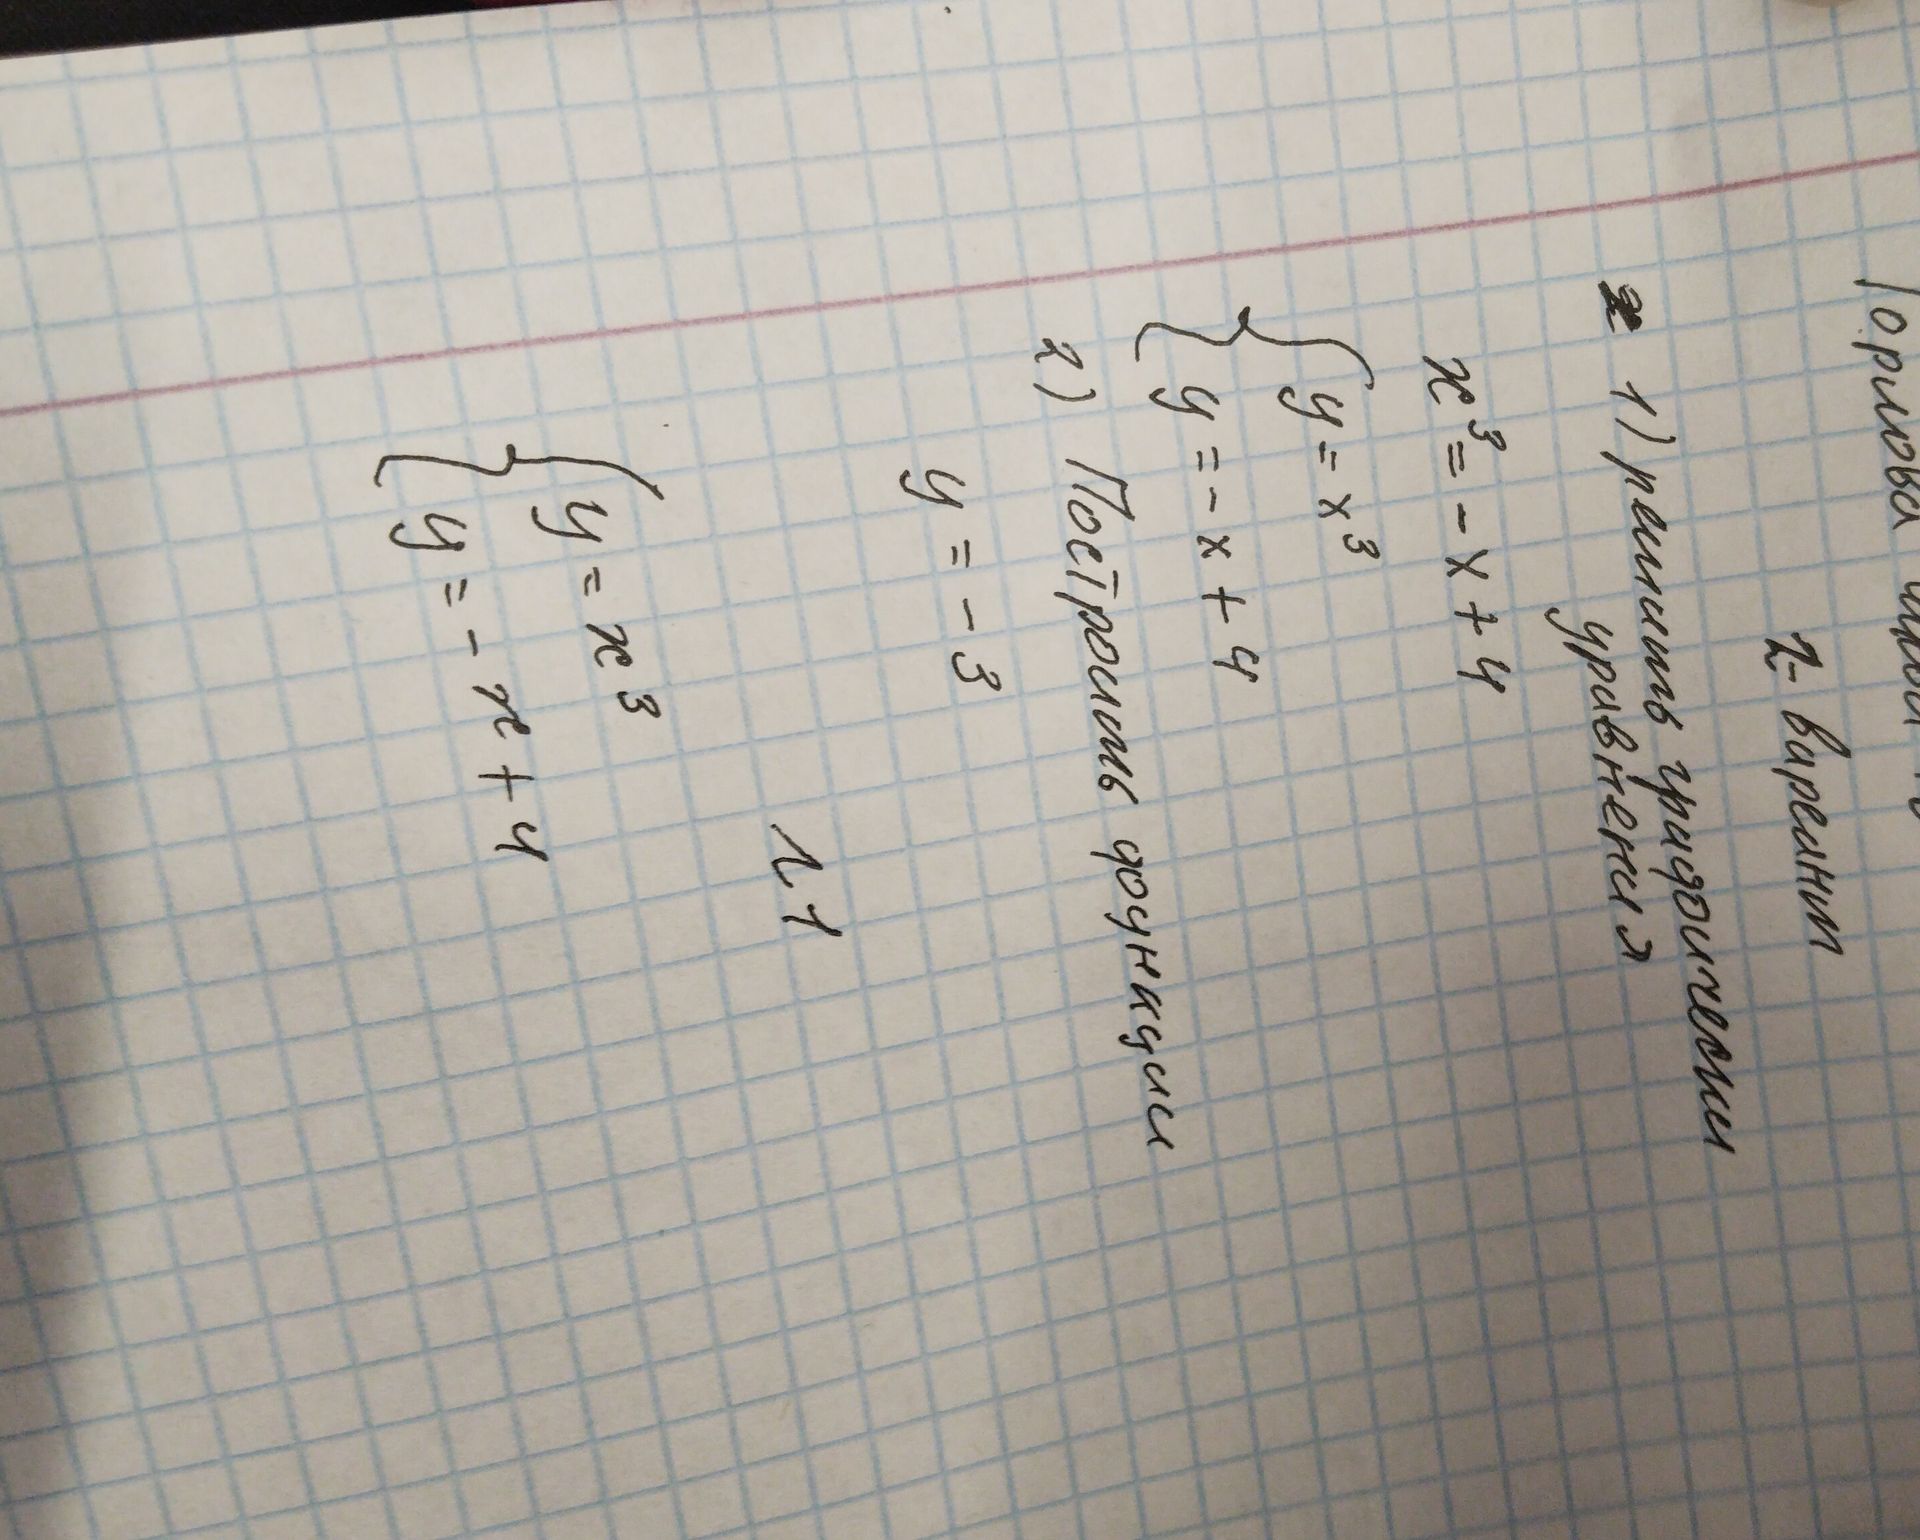 Горлова
2-виремнт
1) решить графически
уравнения
x³ = -x + 4
{ y = x³
{ y = -x + 4
2) Построить функции
y = -3
11
{ y = x³
{ y = -x + 4